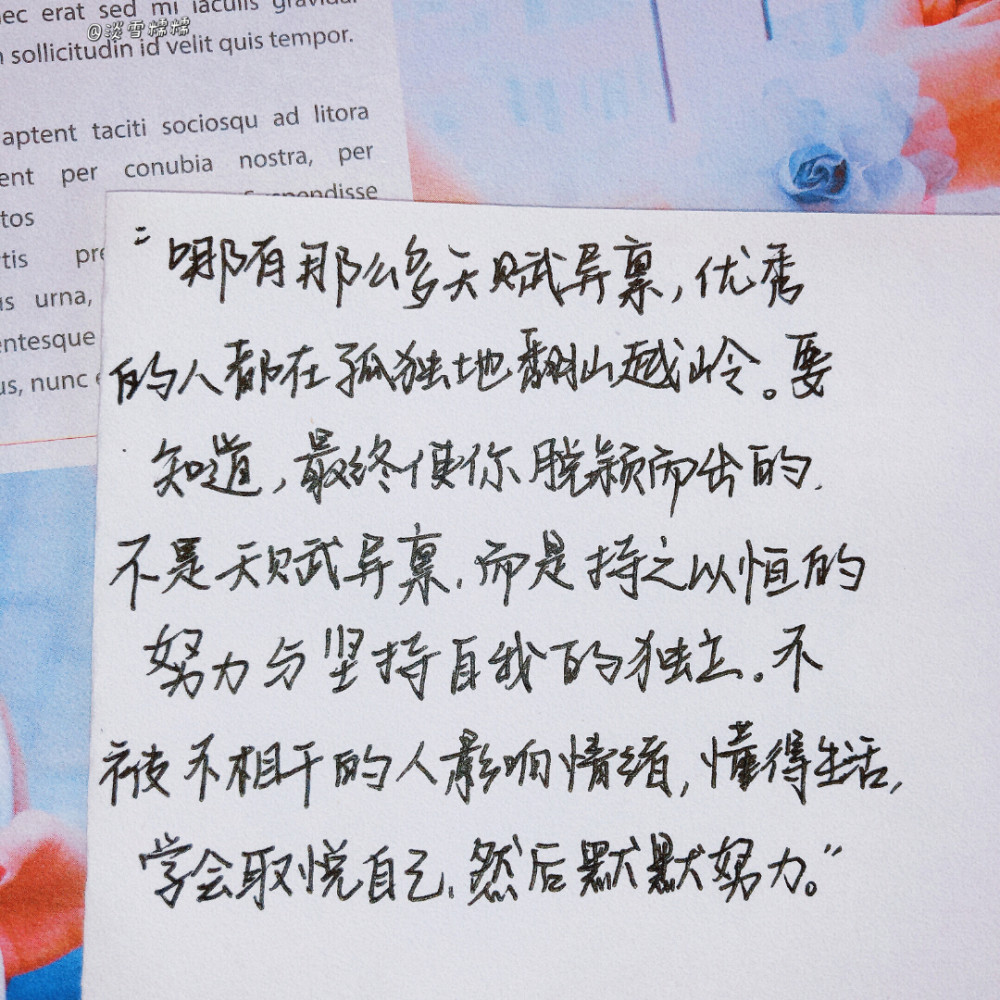 nec erat sed mi iaculis gravida
@淡雪襦襦
sollicitudin id velit quis tempor.
aptent taciti sociosqu ad litora
per conubia nostra, per
urna,
nunc
“哪有那么多天赋异禀，优秀
的人都在孤独地翻山越岭。要
知道，最终使你脱颖而出的，
不是天赋异禀，而是持之以恒的
努力与坚持自我的独立。不
被不相干的人影响情绪，懂得生活，
学会取悦自己，然后默默努力。”